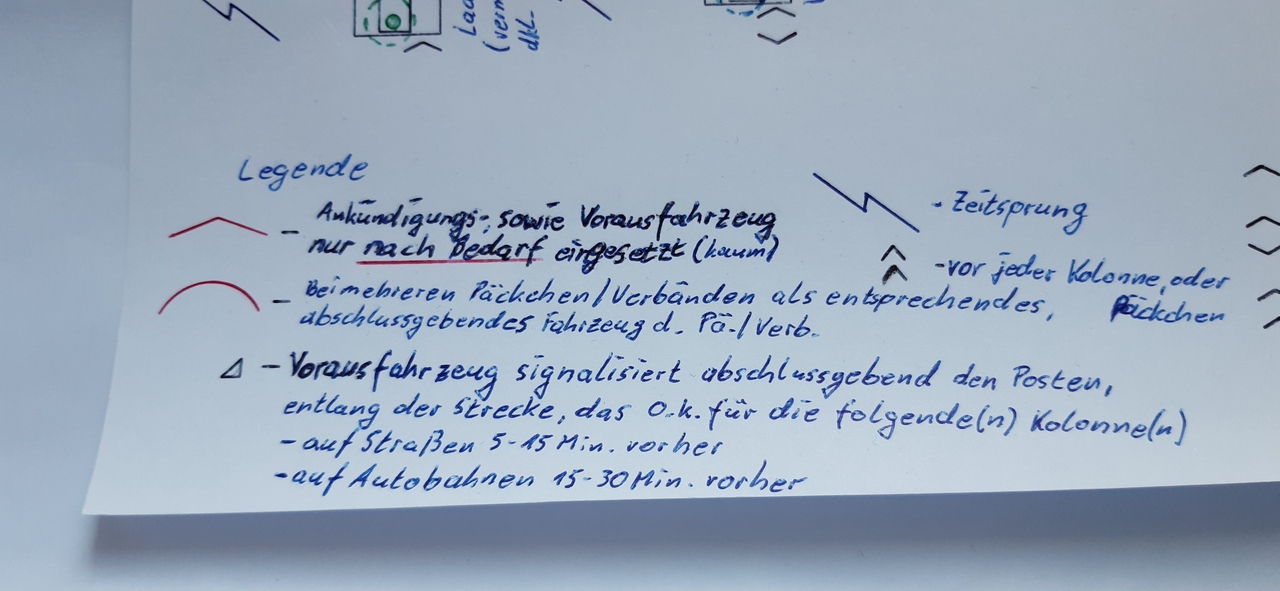 (verm
dkl.
Legende
Ankündigungs-, sowie Vorausfahrzeug
nur nach Bedarf eingesetzt (kaum)
Bei mehreren Päckchen/Verbänden als entsprechendes,
abschlussgebendes Fahrzeug d. Pä-/Verb.
- Zeitsprung
- vor jeder Kolonne, oder
Päckchen
Δ - Vorausfahrzeug signalisiert abschlussgebend den Posten,
entlang der Strecke, das O.k. für die folgende(n) Kolonne(n)
- auf Straßen 5-15 Min. vorher
- auf Autobahnen 15-30 Min. vorher